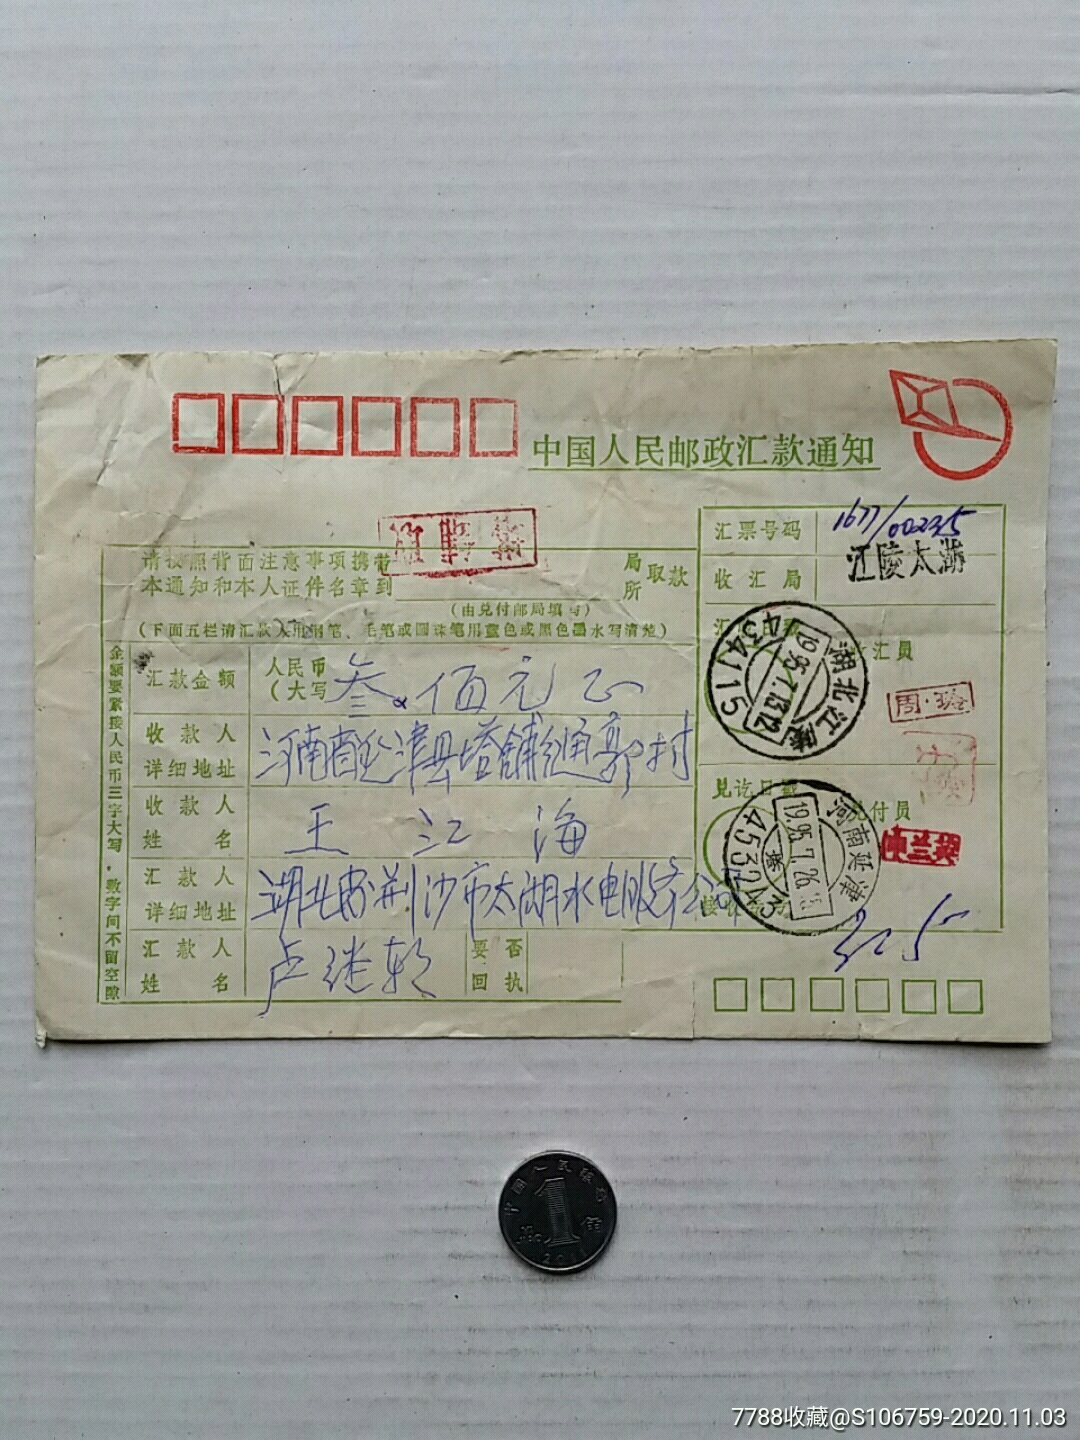 中国人民邮政汇款通知
请按照背面注意事项携带
本通知和本人证件名章到
局
所
取款
(由兑付邮局填写)
(下面五栏请汇款人用钢笔、毛笔或圆珠笔用蓝色或黑色墨水写清楚)
金额要紧接人民币三字大写，数字间不留空隙
汇款金额
人民币
(大写
叁佰元正
收款人
详细地址
河南省延津县塔铺乡通郭村
收款人
姓名
王江海
汇款人
详细地址
湖北省荆沙市太湖水电服务公司
汇款人
姓名
卢继
要否
回执
汇票号码
1677/00235
收汇局
江陵太湖
汇员
湖北江陵
1995.7.13.12
434115
周·玲
兑讫日戳
兑付员
河南延津
1995.7.26
接收
中国人民银行
1角
2011
7788收藏@S106759-2020.11.03